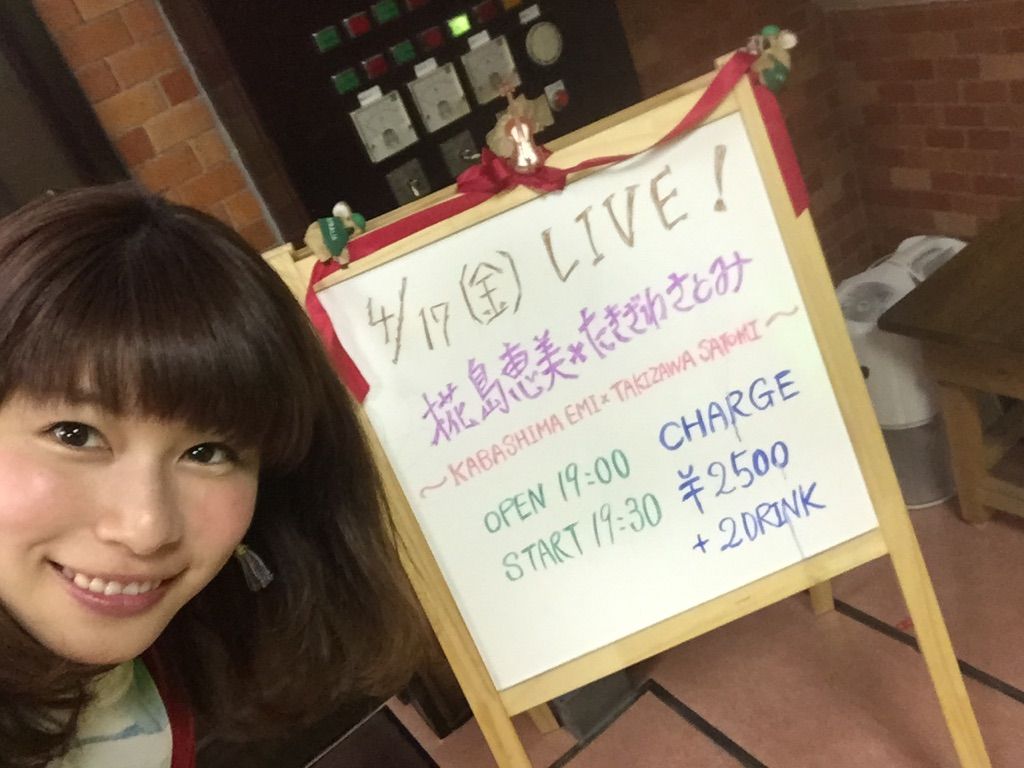 4/17(金) LIVE!
椛島恵美×たきざわさとみ
〜KABASHIMA EMI×TAKIZAWA SATOMI〜
OPEN 19:00
START 19:30
CHARGE
¥2500
+2DRINK